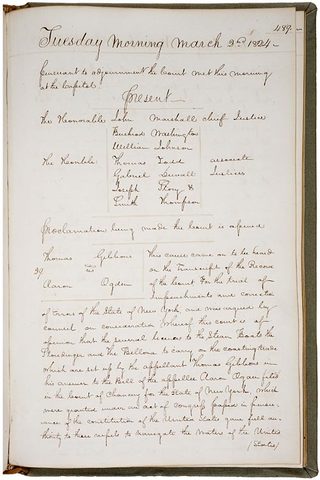 489.
Tuesday Morning March 2d. 1824 -
Pursuant to adjournment the Court met this morning
at the Capitol.
Present
The Honorable John Marshall chief Justice
Bushrod Washington
William Johnson
The Honble. Thomas Todd associate
Gabriel Duvall Justices
Joseph Story &
Smith Thompson
Proclamation being made the Court is opened
Thomas Gibbons
39 vs
Aaron Ogden
This cause came on to be heard
on the Transcript of the Record
of the Court for the trial of
Impeachments and correction
of Errors of the State of New York and was argued by
counsel on consideration whereof this court is of
opinion that the several licenses to the Steam Boats the
Stoudinger and the Bellona to carry on the coasting trade
which are set up by the appellant Thomas Gibbons in
his answer to the Bill of the appellee Aaron Ogden filed
in the Court of Chancery for the State of New York, which
were granted under an act of Congress passed in pursu-
ance of the constitution of the United States gave full au-
thority to those vessels to navigate the waters of the United
(States)